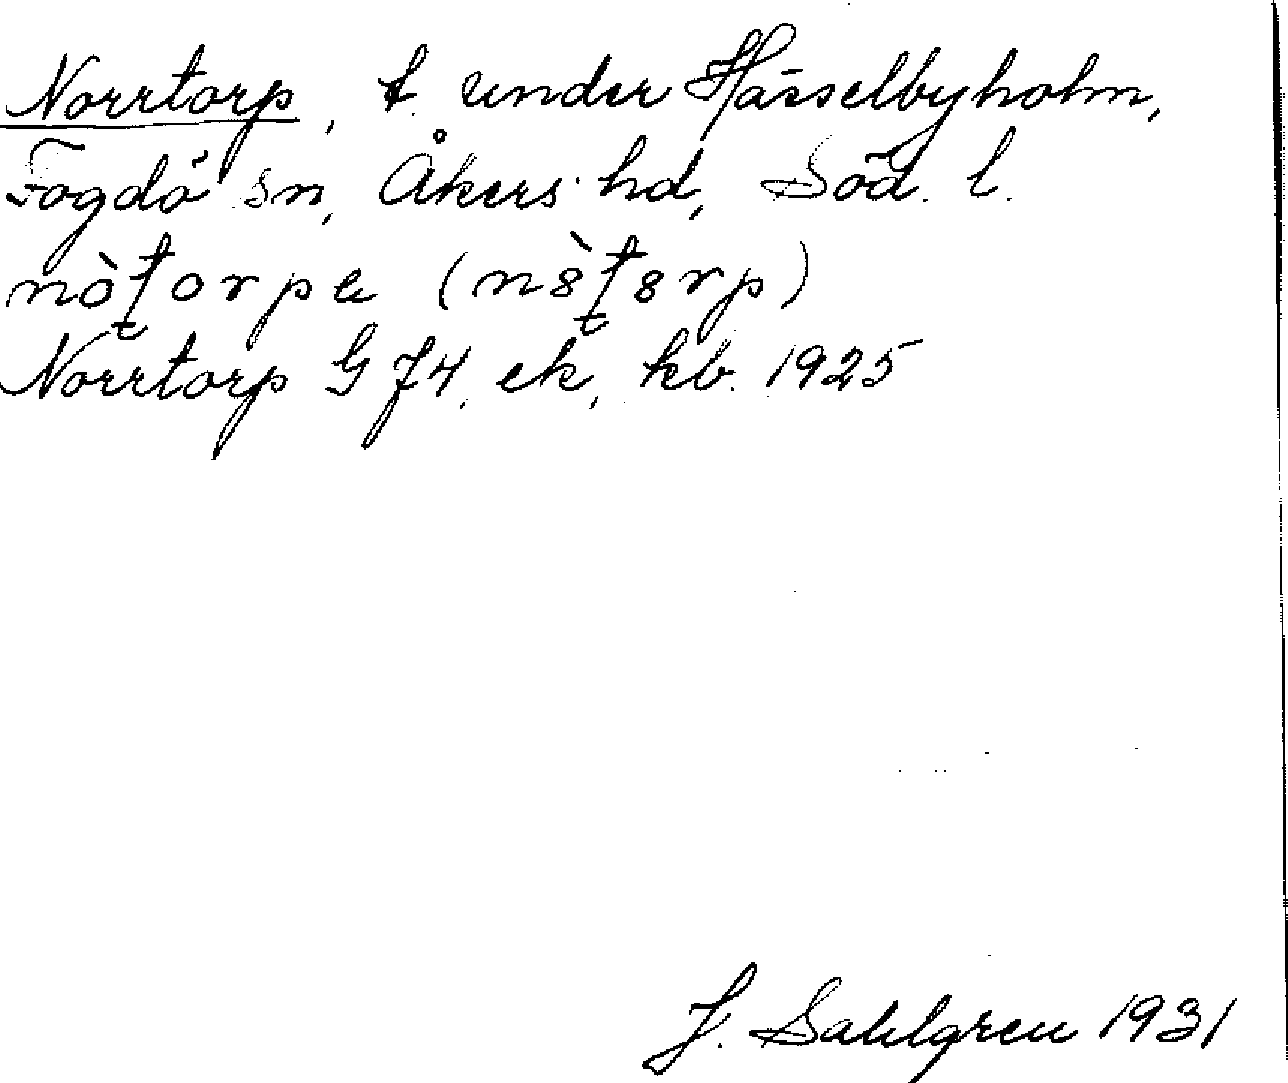 Norrtorp, t. under Hässelbyholm,
Fogdö sn, Åkers hd, Söd. l.
Norrtorp GJ4, ek, kb. 1925
J. Sahlgren 1931